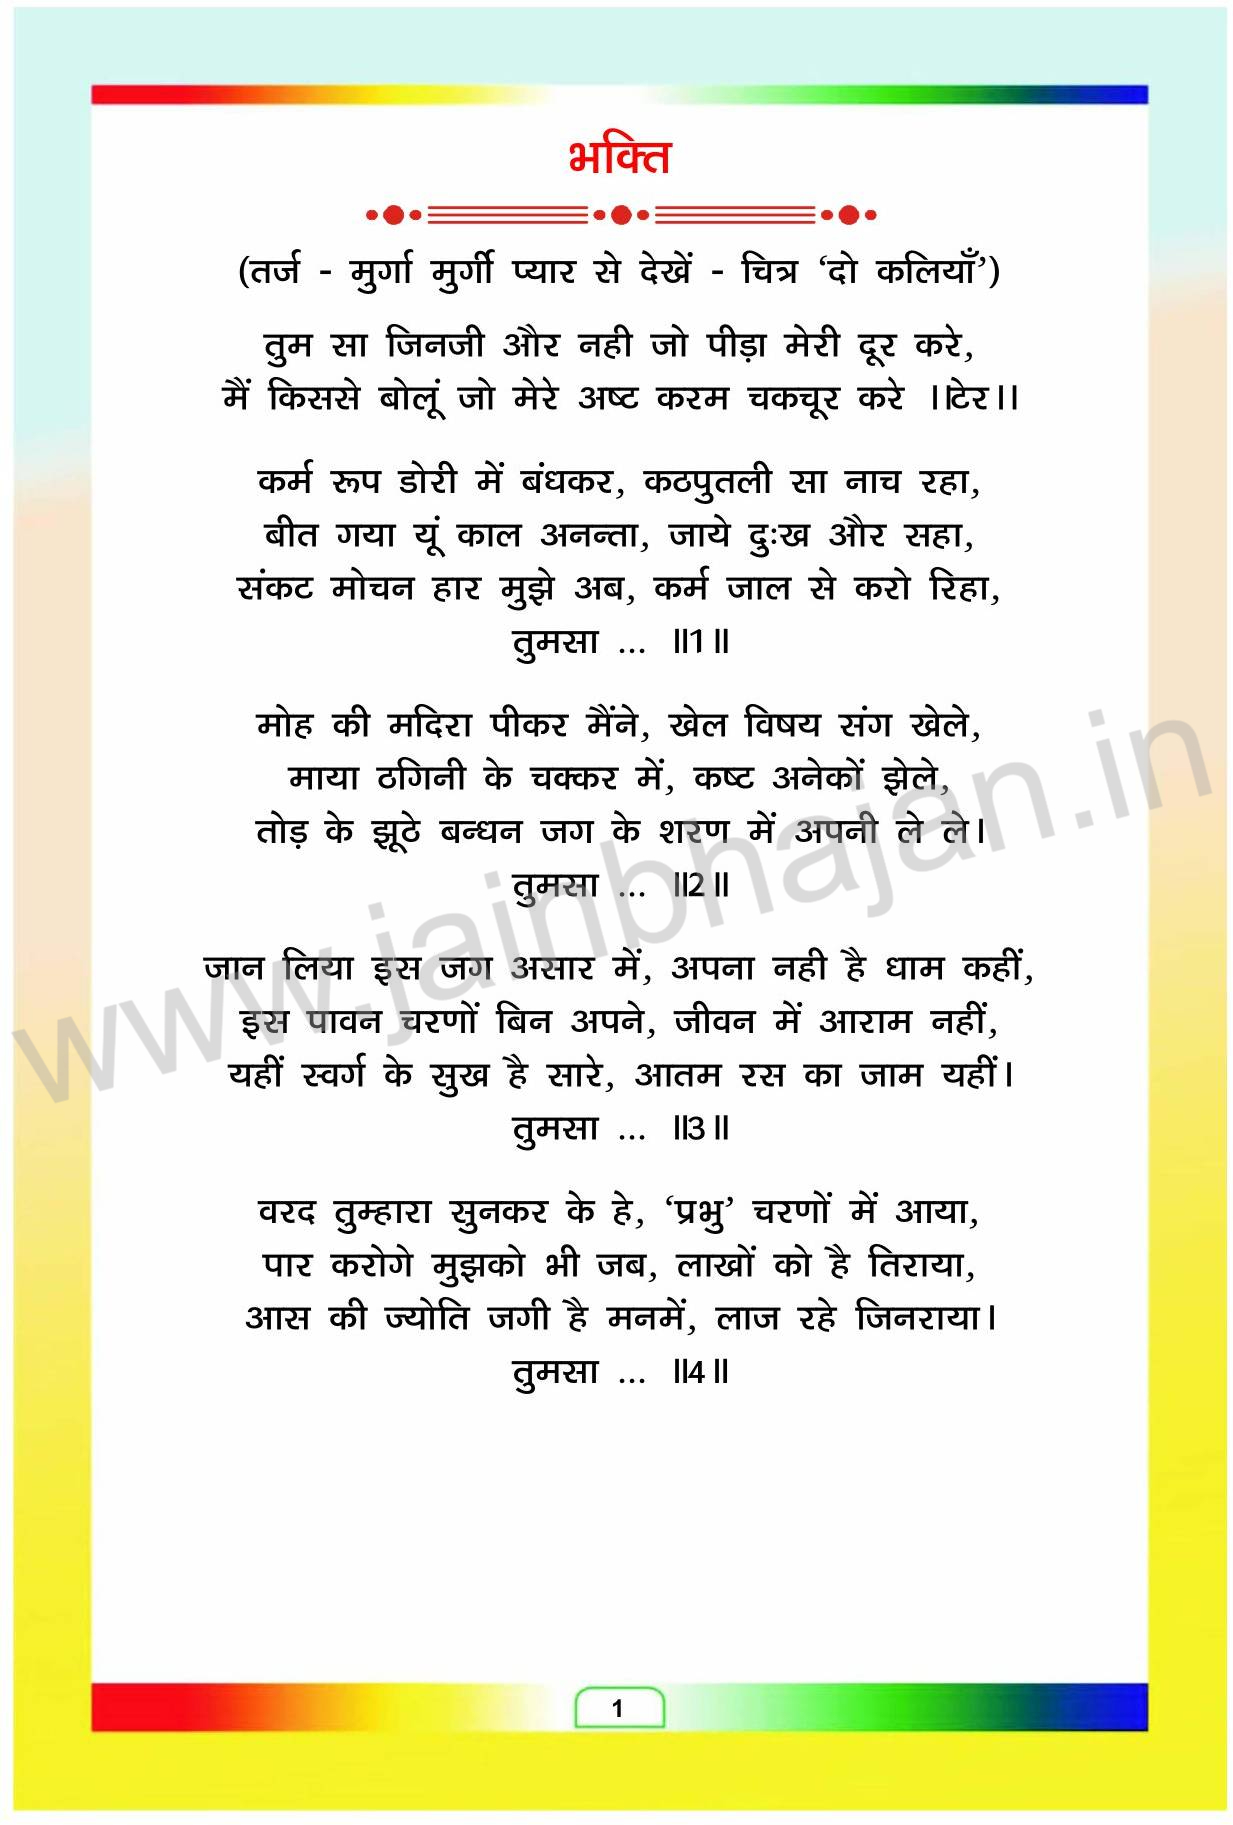 भक्ति
(तर्ज - मुर्गा मुर्गी प्यार से देखें - चित्र ‘दो कलियाँ’)
तुम सा जिनजी और नही जो पीड़ा मेरी दूर करे,
मैं किससे बोलूं जो मेरे अष्ट करम चकचूर करे ।।टेर।।
कर्म रूप डोरी में बंधकर, कठपुतली सा नाच रहा,
बीत गया यूं काल अनन्ता, जाये दुःख और सहा,
संकट मोचन हार मुझे अब, कर्म जाल से करो रिहा,
तुमसा ... ॥1॥
मोह की मदिरा पीकर मैंने, खेल विषय संग खेले,
माया ठगिनी के चक्कर में, कष्ट अनेकों झेले,
तोड़ के झूठे बन्धन जग के शरण में अपनी ले ले।
तुमसा ... ॥2॥
जान लिया इस जग असार में, अपना नही है धाम कहीं,
इस पावन चरणों बिन अपने, जीवन में आराम नहीं,
यहीं स्वर्ग के सुख है सारे, आतम रस का जाम यहीं।
तुमसा ... ॥3॥
वरद तुम्हारा सुनकर के हे, ‘प्रभु’ चरणों में आया,
पार करोगे मुझको भी जब, लाखों को है तिराया,
आस की ज्योति जगी है मनमें, लाज रहे जिनराया।
तुमसा ... ॥4॥
1
www.jainbhajan.in